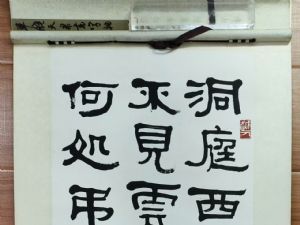 洞庭西
不見雲
何処弔